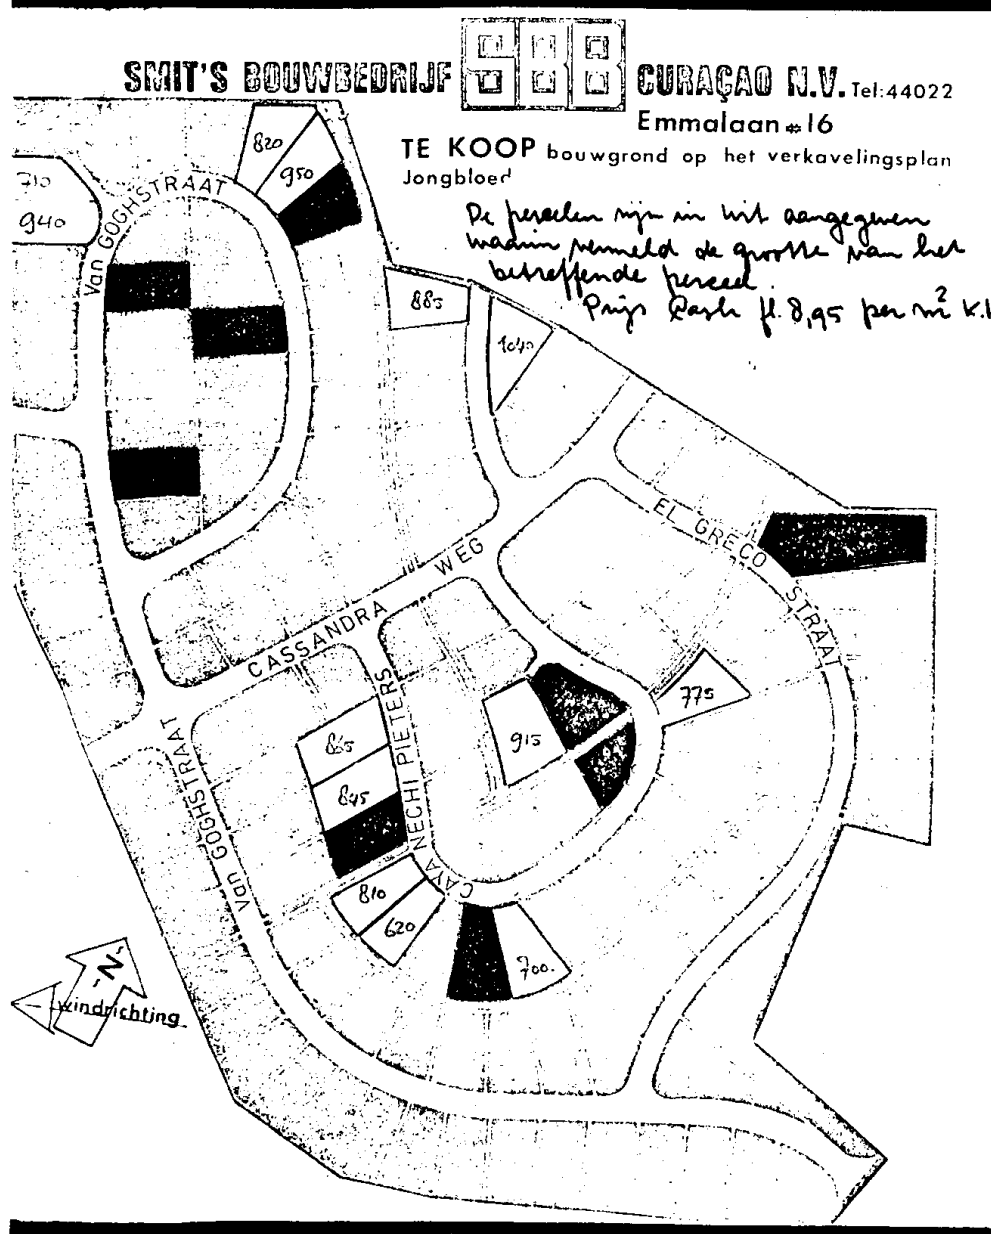 SMIT'S BOUWBEDRIJF SBB CURAÇAO N.V. Tel:44022
Emmalaan #16
TE KOOP bouwgrond op het verkavelingsplan
Jongbloed
De percelen zijn in wit aangegeven
waarin vermeld de grootte van het
betreffende perceel.
Prijs Cash fl. 8,95 per m² K.
820
950
710
940
Van GOGHSTRAAT
885
1040
EL GRECO STRAAT
CASSANDRA WEG
775
915
865
845
CAYA NECHI PIETERS
Van GOGHSTRAAT
810
620
700.
-N-
windrichting